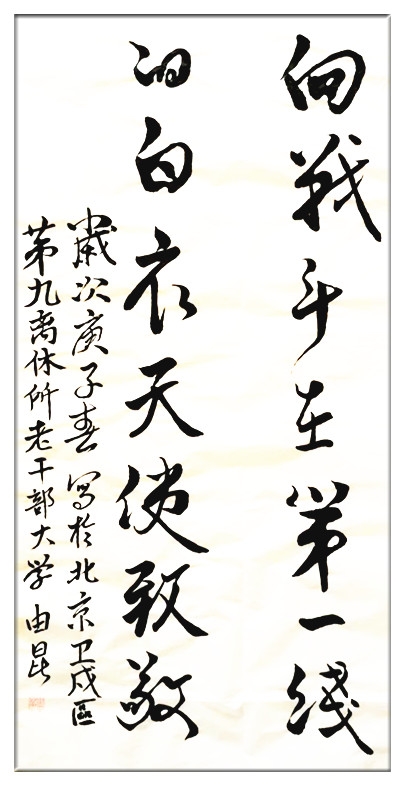 向战斗在第一线
的白衣天使致敬
岁次庚子春 写于北京卫戍区
第九离休所老干部大学 由昆